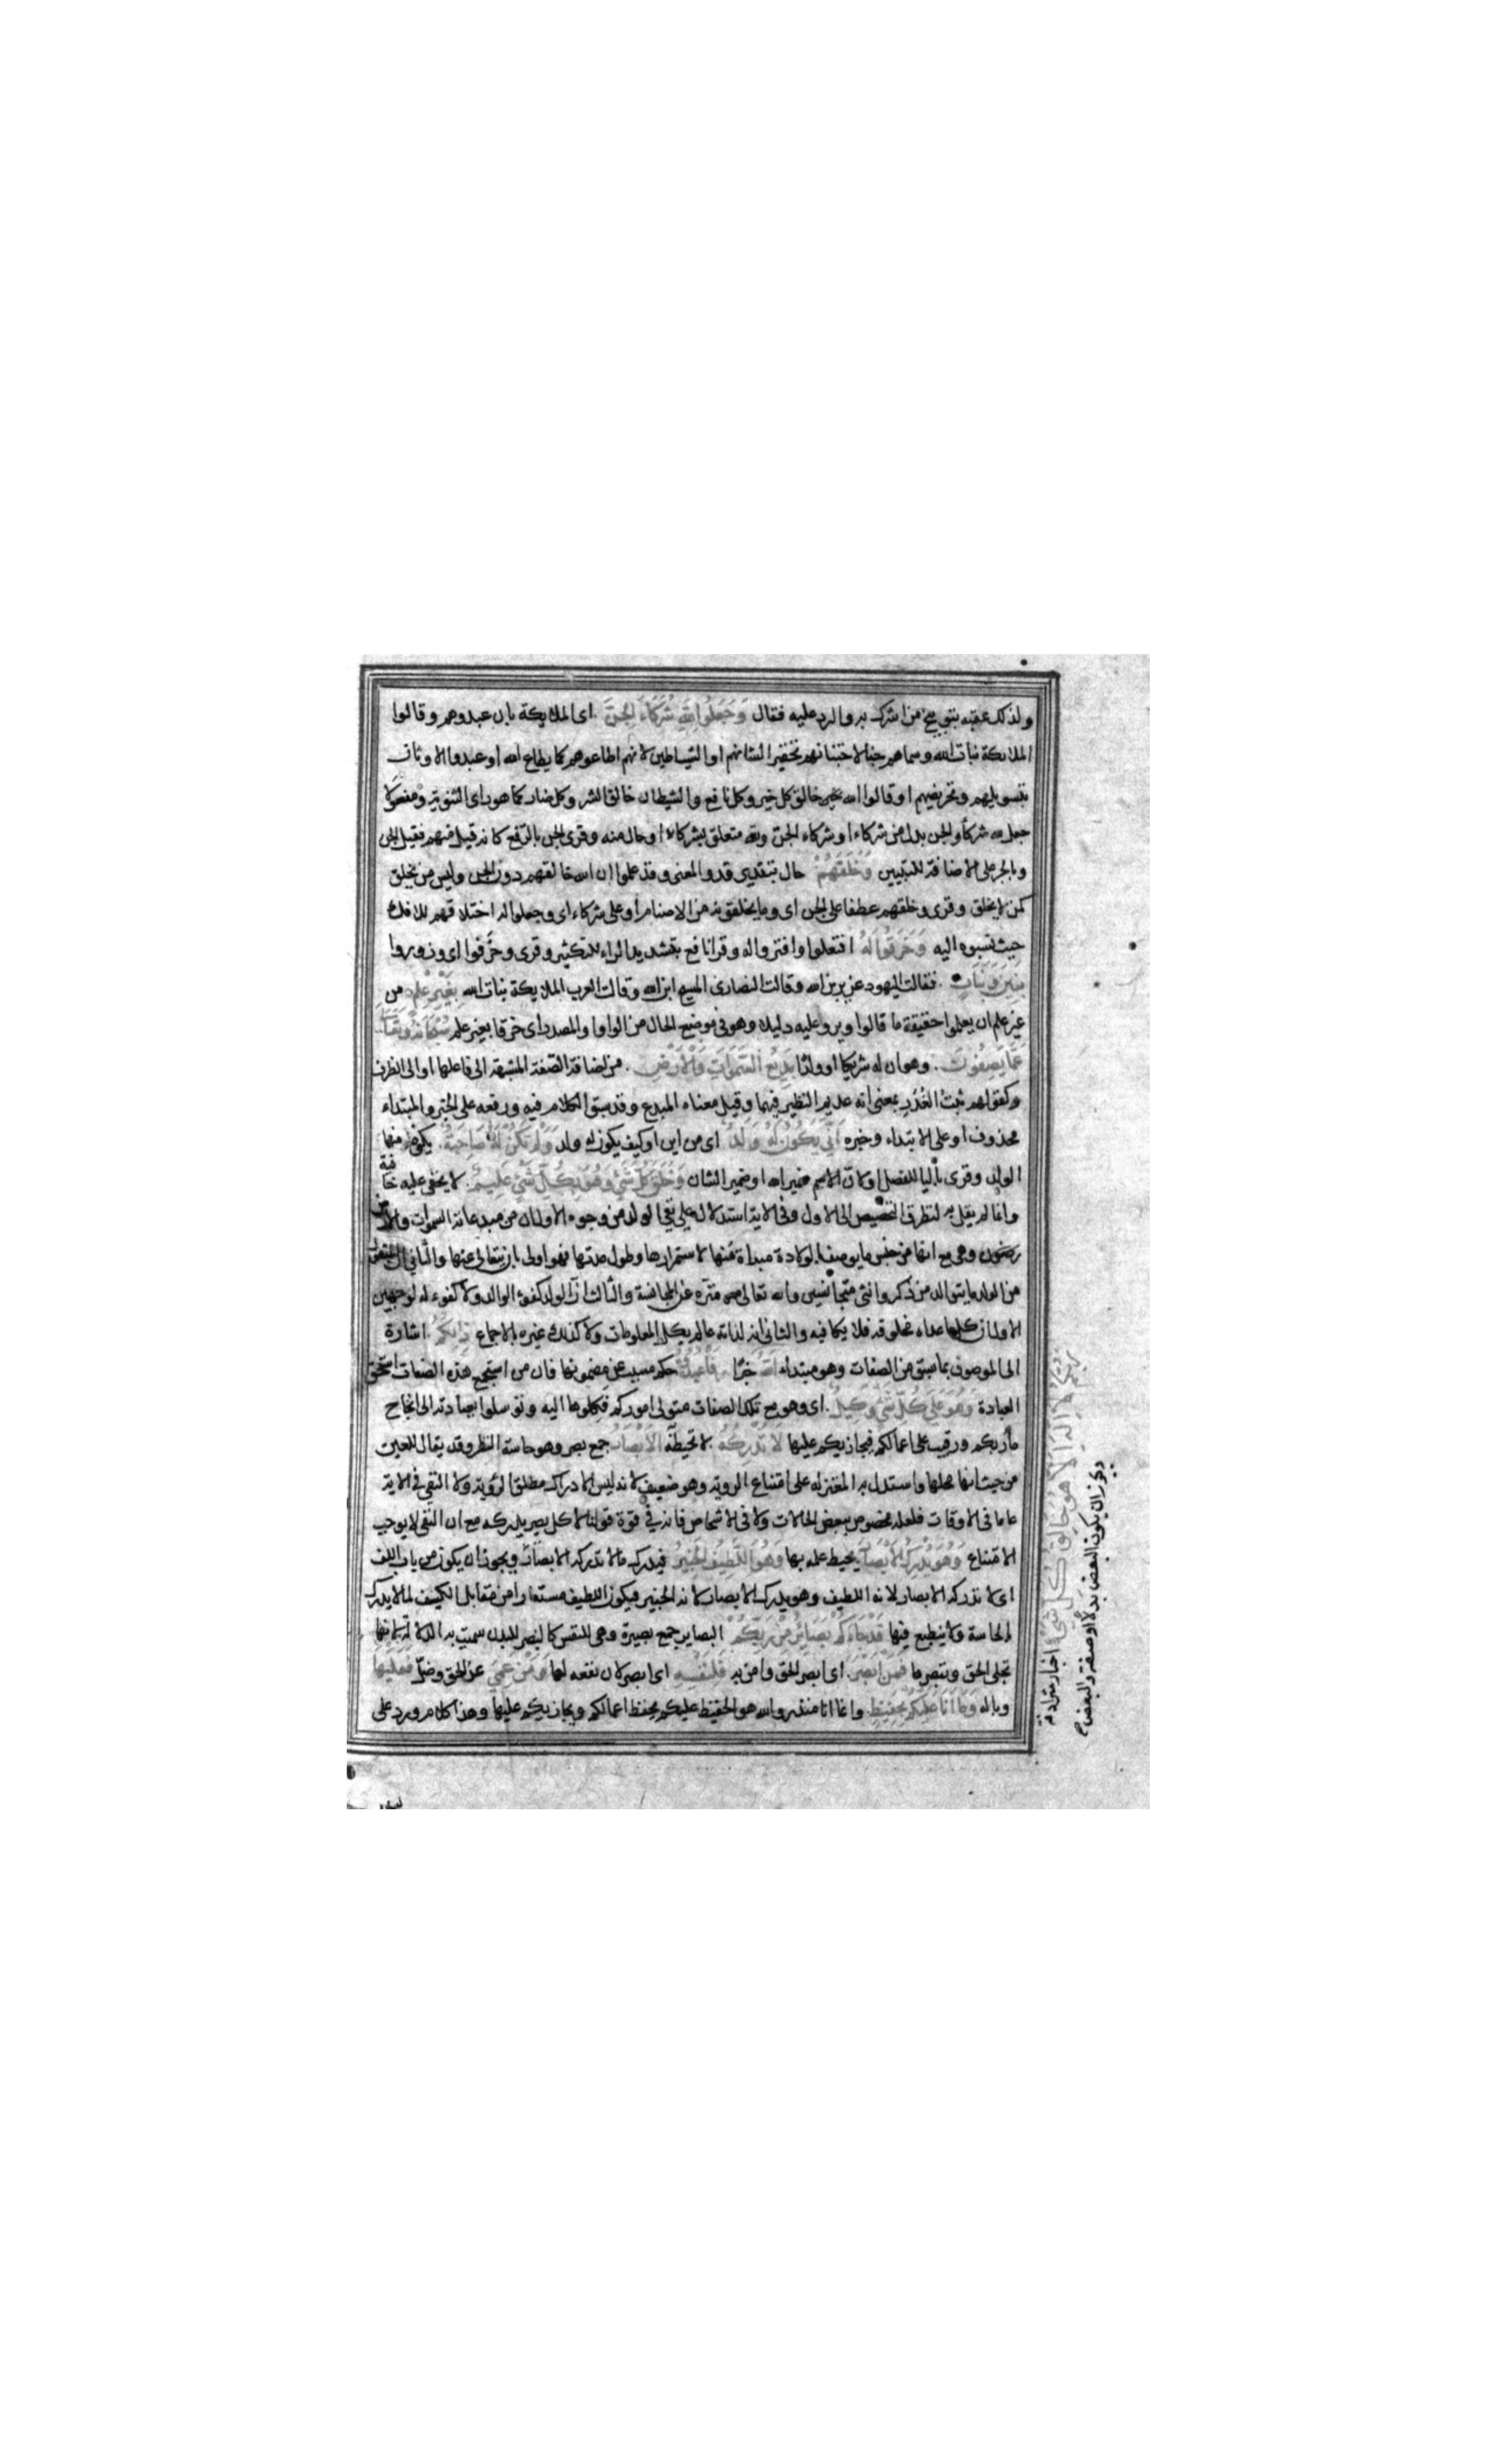 ولذلك عقبه بتوبيخ من اشرك به والرد عليه فقال وَجَعَلُوا لِلّٰهِ شُرَكَاءَ الْجِنَّ اى الملايكة بان عبدوهم وقالوا
الملايكة بنات الله وسماهم جنا لاجتنانهم تحقيرا لشانهم او الشياطين لانهم اطاعوهم كما يطاع الله او عبدوا الاوثان
بتسويلهم وتحريضهم او قالوا الله خالق كل خير وكل نافع والشيطان خالق الشر وكل ضار كما هو راى الثنوية ومفعولا
جعل لله شركاء والجن بدل من شركاء او شركاء الجن ولله متعلق بشركاء او حال منه وقرئ الجن بالرفع كانه قيل من هم فقيل الجن
وبالجر على الاضافة للتبيين وَخَلَقَهُمْ حال بتقدير قد والمعنى وقد علموا ان الله خالقهم دون الجن وليس من يخلق
كمن لا يخلق وقرى وخلقهم عطفا على الجن اى وما يخلقونه من الاصنام او على شركاء اى وجعلوا له اختلاقهم للافك
حيث نسبوه اليه وَخَرَقُوا لَهُ افتعلوا وافتروا له وقرا نافع بتشديد الراء للتكثير وقرى وحرّفوا اى وزوروا
بَنِينَ وَبَنَاتٍ فقالت اليهود عزير بن الله وقالت النصارى المسيح ابن الله وقالت العرب الملايكة بنات الله بِغَيْرِ عِلْمٍ من
غير علم ان يعلموا حقيقة ما قالوا ويروا عليه دليلا وهو في موضع الحال من الواو او المصدر اى خرقا بغير علم سُبْحَانَهُ وَتَعَالَى
عَمَّا يَصِفُونَ وهو ان له شريكا او ولدا بَدِيعُ السَّمَوَاتِ وَالْاَرْضِ من اضافة الصفة المشبهة الى فاعلها او الى الظرف
كقولهم ثبت الغدر بمعنى انه عديم النظير فيهما وقيل معناه المبدع وقد سبق الكلام فيه ورفعه على الخبر والمبتداء
محذوف او على الابتداء وخبره اَنَّى يَكُونُ لَهُ وَلَدٌ اى من اين او كيف يكون له ولد وَلَمْ تَكُنْ لَهُ صَاحِبَةٌ يكون منها
الولد وقرى باليا للفصل او لان الاسم ضمير الله او ضمير الشان وَخَلَقَ كُلَّ شَيْءٍ وَهُوَ بِكُلِّ شَيْءٍ عَلِيمٌ لا يخفى عليه خافية
وانما لم يقل به لتطرق التخصيص الى الاول وفى الاية استدلال على نفي الولد من وجوه الاول ان من مبدعاته السموات والارضين
وهى مع انها من جنس ما يوصف بالولادة مبراة عنها لاستمرارها وطول مدتها فهو اولى بان يتعالى عنها والثاني ان المعقول
من الولد ما يتوالد من ذكر وانثى متجانسين والله تعالى منزه عن المجانسة والثالث ان الولد كفوء الوالد ولا كفوء له لوجهين
الاول ان كل ما عداه مخلوقه فلا يكافيه والثانى انه لذاته عالم بكل المعلومات ولا كذلك غيره بالاجماع ذٰلِكُمُ اشارة
الى الموصوف بما سبق من الصفات وهو مبتداء اللّٰهُ خبر فَاعْبُدُوهُ حكم مسبب عن مضمونها فان من استجمع هذه الصفات استحق
العبادة وَهُوَ عَلَى كُلِّ شَيْءٍ وَكِيلٌ اى وهو مع تلك الصفات متولى اموركم فكلوها اليه وتوسلوا بعبادته الى انجاح
مأربكم ورقيب على اعمالكم فيجازيكم عليها لَا تُدْرِكُهُ لا تحيط به الْاَبْصَارُ جمع بصر وهو حاسة النظر وقد يقال للعين
من حيث انها محلها واستدل به المعتزلة على امتناع الروية وهو ضعيف لانه ليس الادراك مطلق الروية ولا النفي في الاية
عاما فى الاوقات فلعله مخصوص ببعض الحالات ولا فى الاشخاص فانه في قوة قولنا لا كل بصر يدركه مع ان النفى لا يوجب
الامتناع وَهُوَ يُدْرِكُ الْاَبْصَارَ يحيط علمه بها وَهُوَ اللَّطِيفُ الْخَبِيرُ فيدرك ما لا تدركه الابصار ويجوز ان يكون من باب اللف
اى لا تدركه الابصار لانه اللطيف وهو يدرك الابصار لانه الخبير فيكون اللطيف مستعارا من مقابل الكثيف لما لا يدرك
بالحاسة ولا ينطبع فيها قَدْ جَاءَكُمْ بَصَائِرُ مِنْ رَبِّكُمْ البصاير جمع بصيرة وهى للنفس كالبصر للبدن سميت به الدلالة لانها
تجلى الحق وتبصرها فَمَنْ اَبْصَرَ اى ابصر الحق وامن به فَلِنَفْسِهِ اى ابصر لان نفعه لها وَمَنْ عَمِيَ عن الحق وضل فَعَلَيْهَا
وباله وَمَا اَنَا عَلَيْكُمْ بِحَفِيظٍ وانما انا منذر والله هو الحفيظ عليكم يحفظ اعمالكم ويجازيكم عليها وهذا كلام ورد على
رَبُّكُمْ لَا اِلٰهَ اِلَّا هُوَ خَالِقُ كُلِّ شَيْءٍ اخبار مترادفة
ويجوز ان يكون البعض بدلا او صفة والبعض